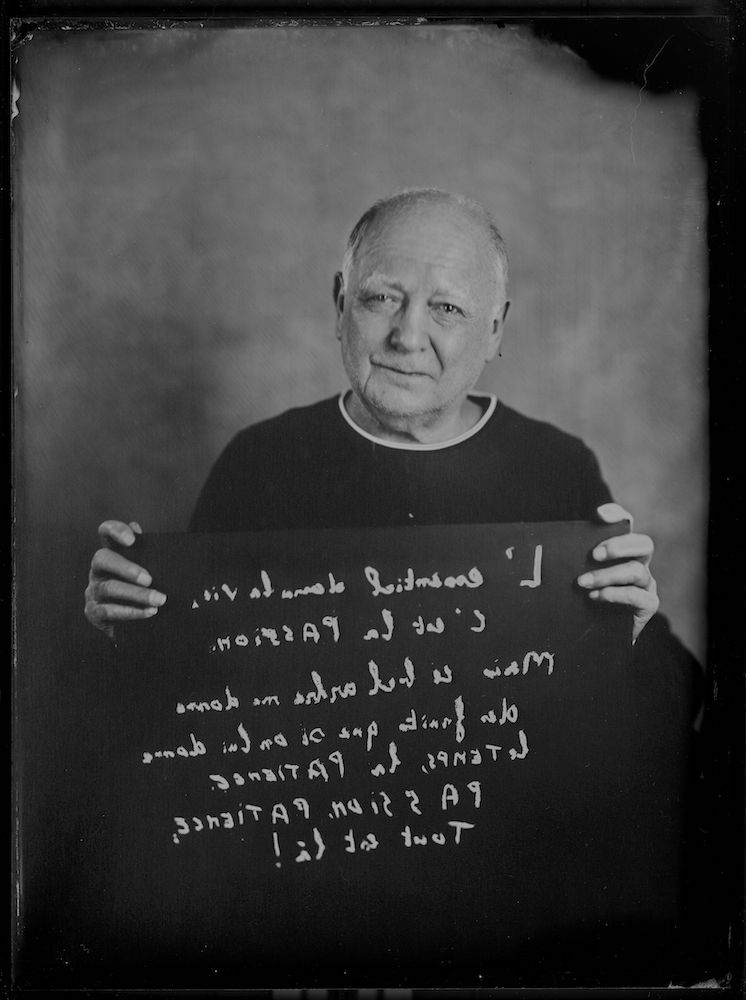 L'essentiel dans la vie,
c'est la PASSION.
Mais ce bel arbre ne donne
des fruits que si on lui donne
le TEMPS, la PATIENCE.
PASSION, PATIENCE,
Tout est là !